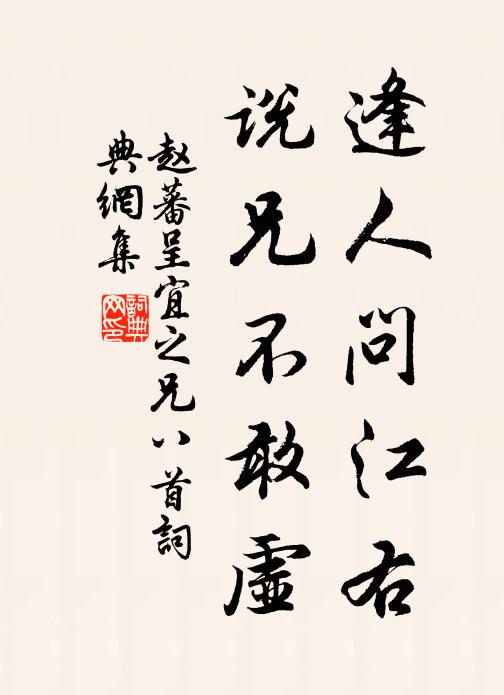 逢人问江右
说兄不敢虚
赵蕃呈宜之兄八首词
典网集
词典网印